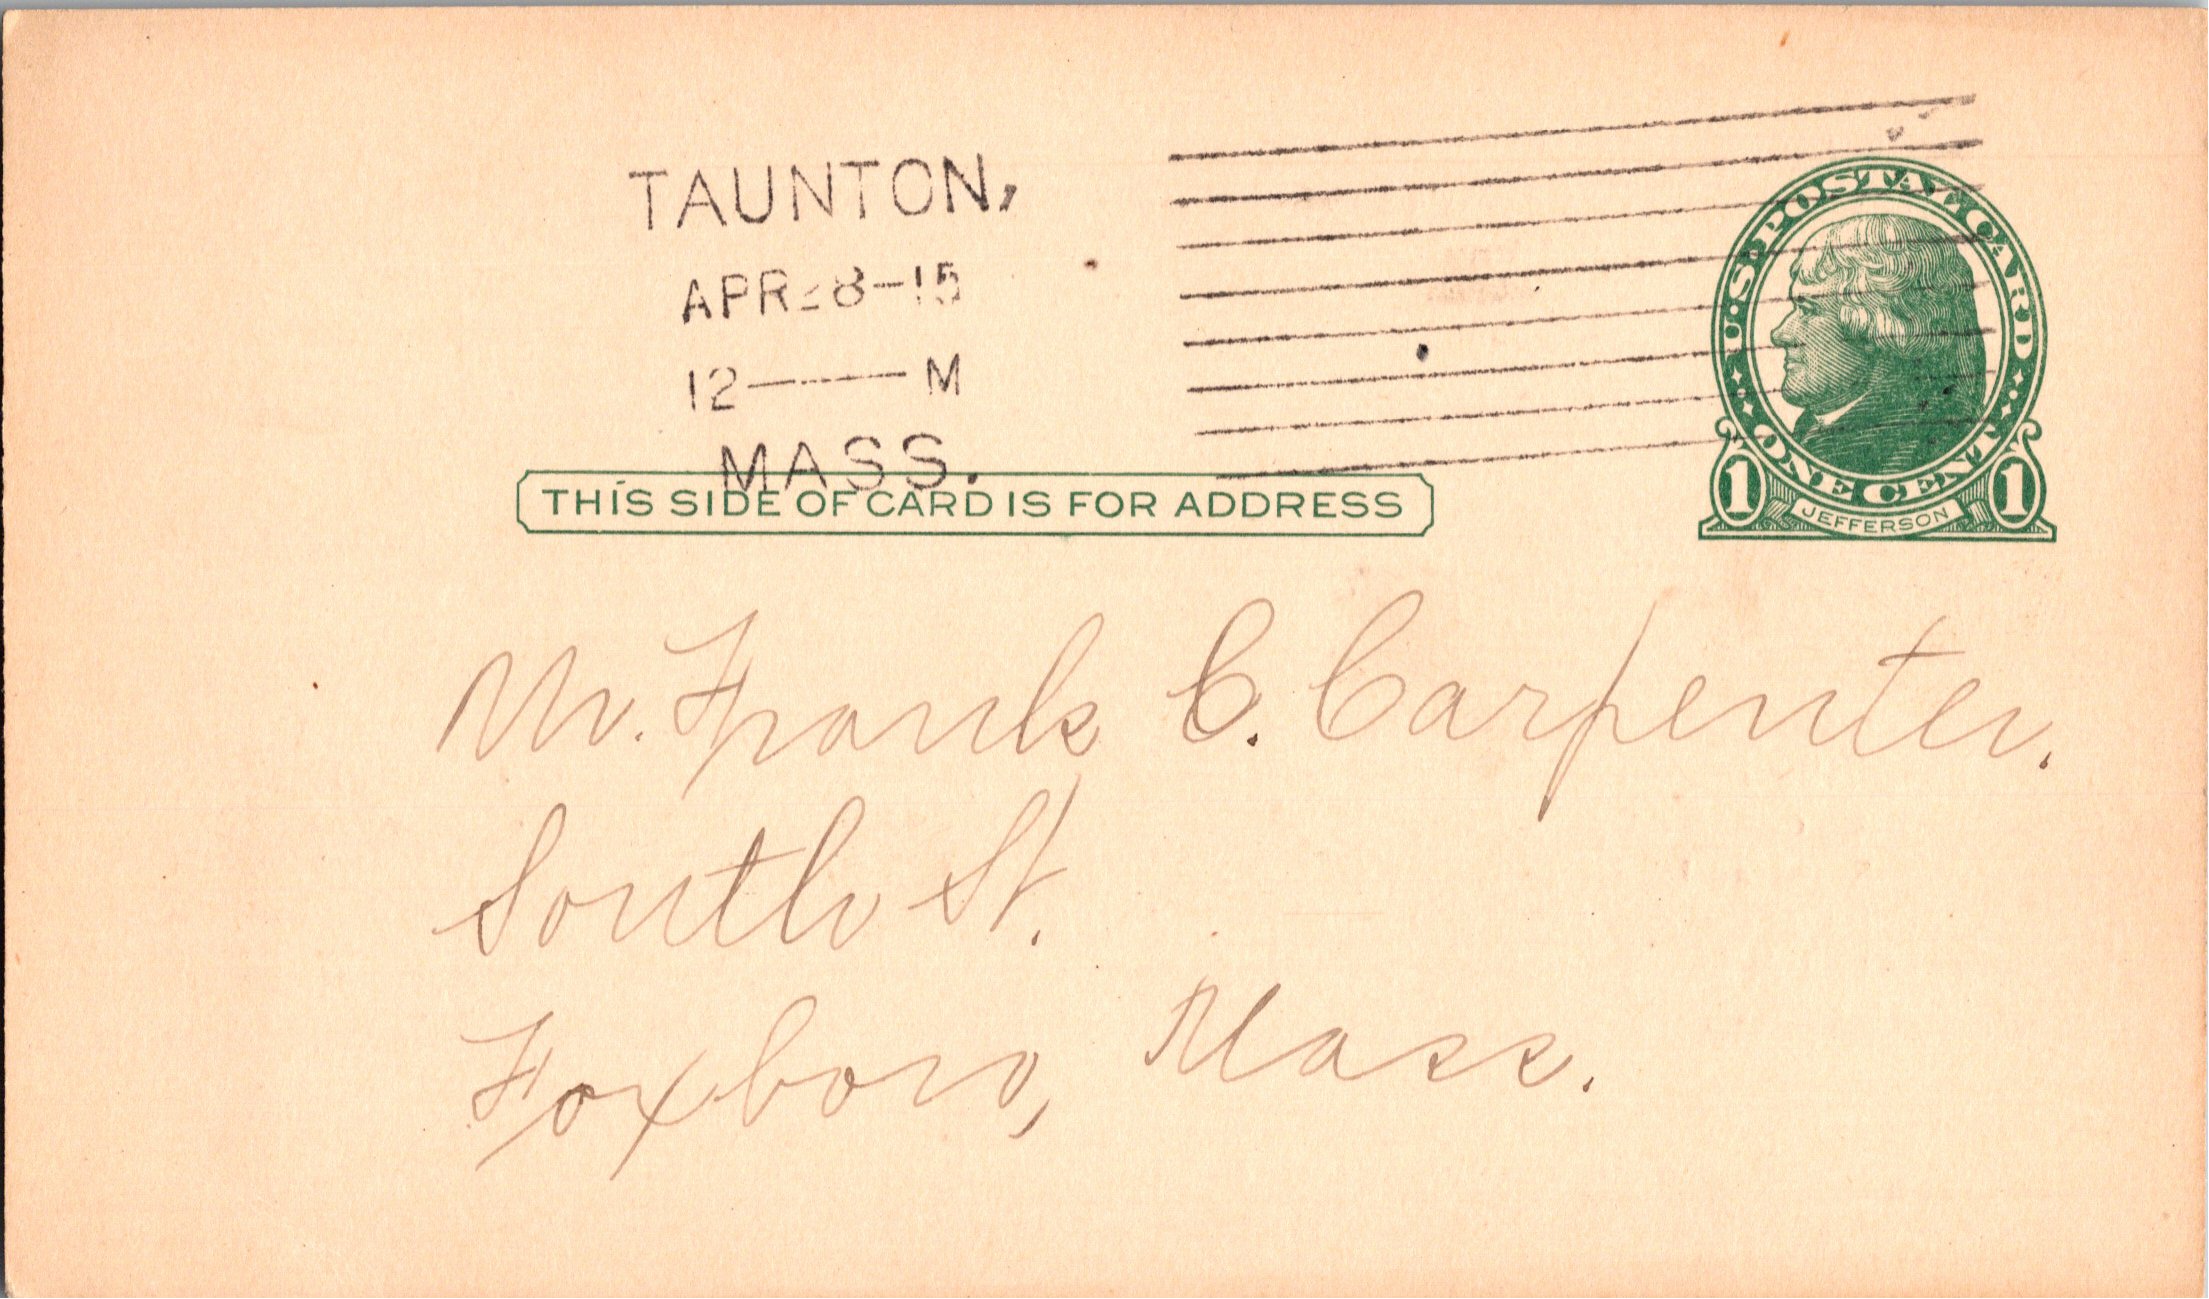 TAUNTON,
APR 28-15
12 — M
MASS.
U.S. POSTAL CARD
ONE CENT
1 JEFFERSON 1
THIS SIDE OF CARD IS FOR ADDRESS
Mr. Frank C. Carpenter.
South St.
Foxboro, Mass.